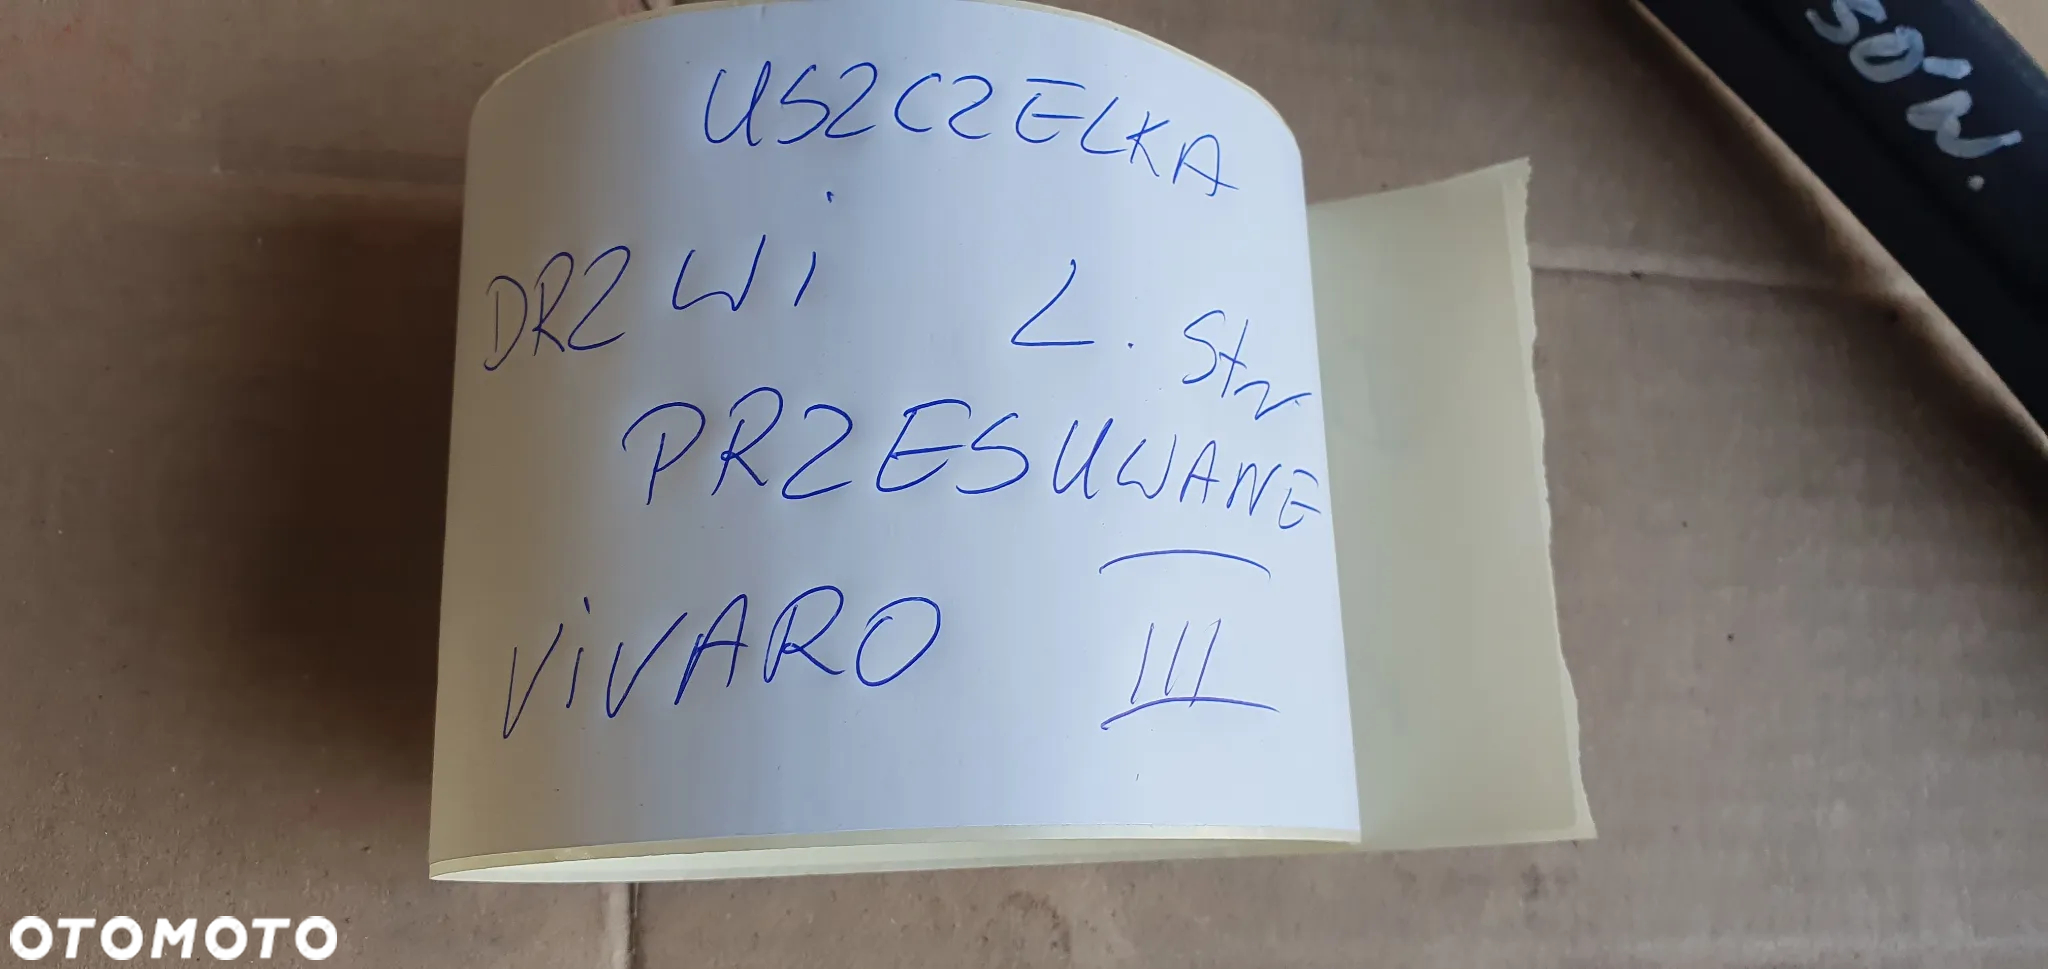 USZCZELKA
DRZWI L. Str.
PRZESUWANE
VIVARO III
OTOMOTO